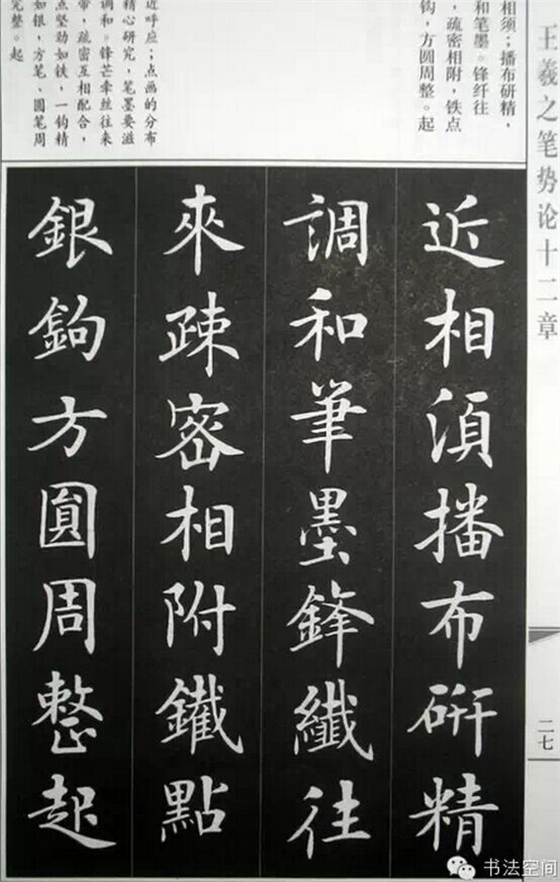 王羲之笔势论十二章
二七
相须；播布研精，
和笔墨。锋纤往
，疏密相附，铁点
钩，方圆周整。起
近呼应；点画的分布
精心研究，笔墨要滋
调和。锋芒牵丝往来
带，疏密互相配合，
点坚劲如铁，一钩精
如银，方笔、圆笔周
完整。起
近相須播布研精
調和筆墨鋒纖往
來疎密相附鐵點
銀鉤方圓周整起
书法空间